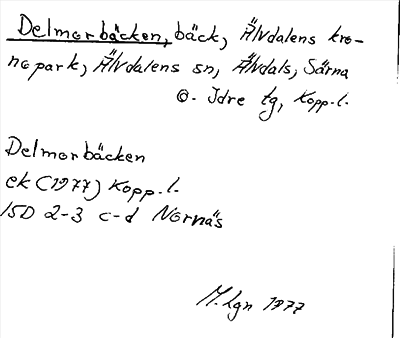 Delmorbäcken, bäck, Älvdalens kro-
nopark, Älvdalens sn, Älvdals, Särna
o. Idre tg, Kopp.l.
Delmorbäcken
ek (1977) Kopp.l.
15D 2-3 c-d Nornäs
M.Lgn 1977